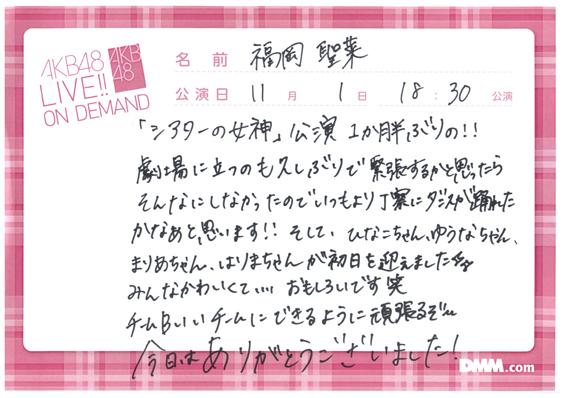 AKB48
LIVE!!
ON DEMAND
AKB
48
名前 福岡 聖菜
公演日 11月 1日 18:30 公演
「シアターの女神」公演 1か月半ぶりの!!
劇場に立つのも久しぶりで緊張するかと思ったら
そんなにしなかったのでいつもより丁寧にダンスが踊れた
かなあと思います!! そして、ひなこちゃん、ゆうなちゃん、
まりあちゃん、はりまちゃんが初日を迎えました
みんなかわいくて.... おもしろいです笑
チームBいいチームにできるように頑張るぞ〜
今日はありがとうございました!
DMM.com